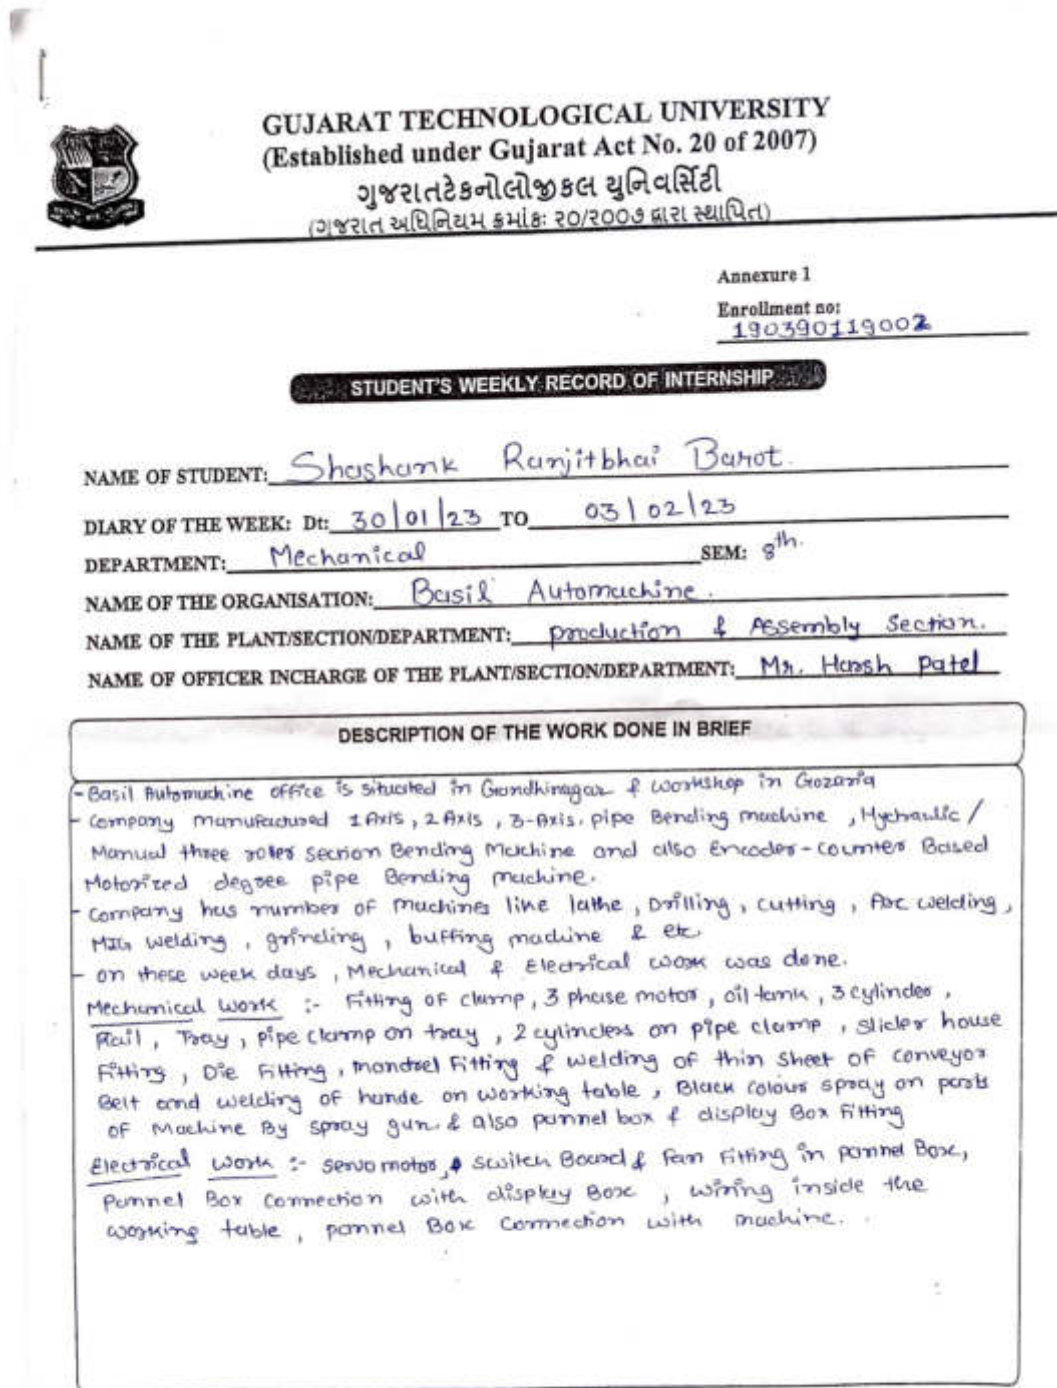 GUJARAT TECHNOLOGICAL UNIVERSITY
(Established under Gujarat Act No. 20 of 2007)
ગુજરાતટેકનોલોજીકલ યુનિવર્સિટી
(ગુજરાત અધિનિયમ ક્રમાંકઃ ૨૦/૨૦૦૭ દ્વારા સ્થાપિત)
Annexure 1
Enrollment no:
190390119002
STUDENT'S WEEKLY RECORD OF INTERNSHIP
NAME OF STUDENT: Shashank Ranjitbhai Barot.
DIARY OF THE WEEK: Dt: 30/01/23 TO 03/02/23
DEPARTMENT: Mechanical SEM: 8th.
NAME OF THE ORGANISATION: Basil Automachine.
NAME OF THE PLANT/SECTION/DEPARTMENT: production & Assembly Section.
NAME OF OFFICER INCHARGE OF THE PLANT/SECTION/DEPARTMENT: Mr. Harsh Patel
DESCRIPTION OF THE WORK DONE IN BRIEF
- Basil Automachine office is situated in Gandhinagar & workshop in Gozaria
- Company manufactured 1 Axis, 2 Axis, 3-Axis. pipe Bending machine, Hydraulic /
Manual three roller section Bending Machine and also Encoder-counter Based
Motorized degree pipe Bending machine.
- Company has number of machines like lathe, Drilling, cutting, Arc welding,
MIG welding, grinding, buffing machine & etc.
- on these week days, Mechanical & Electrical work was done.
Mechanical Work :- Fitting of clamp, 3 phase motor, oil tank, 3 cylinder,
Rail, Tray, pipe clamp on tray, 2 cylinders on pipe clamp, slider house
Fitting, Die Fitting, mandrel Fitting & welding of thin sheet of conveyor
Belt and welding of hande on working table, Black colour spray on parts
of Machine By spray gun. & also pannel box & display Box Fitting
Electrical Work :- servo motor, switch Board & Fan Fitting in pannel Box,
Pannel Box Connection with display Box, wiring inside the
working table, pannel Box Connection with machine.